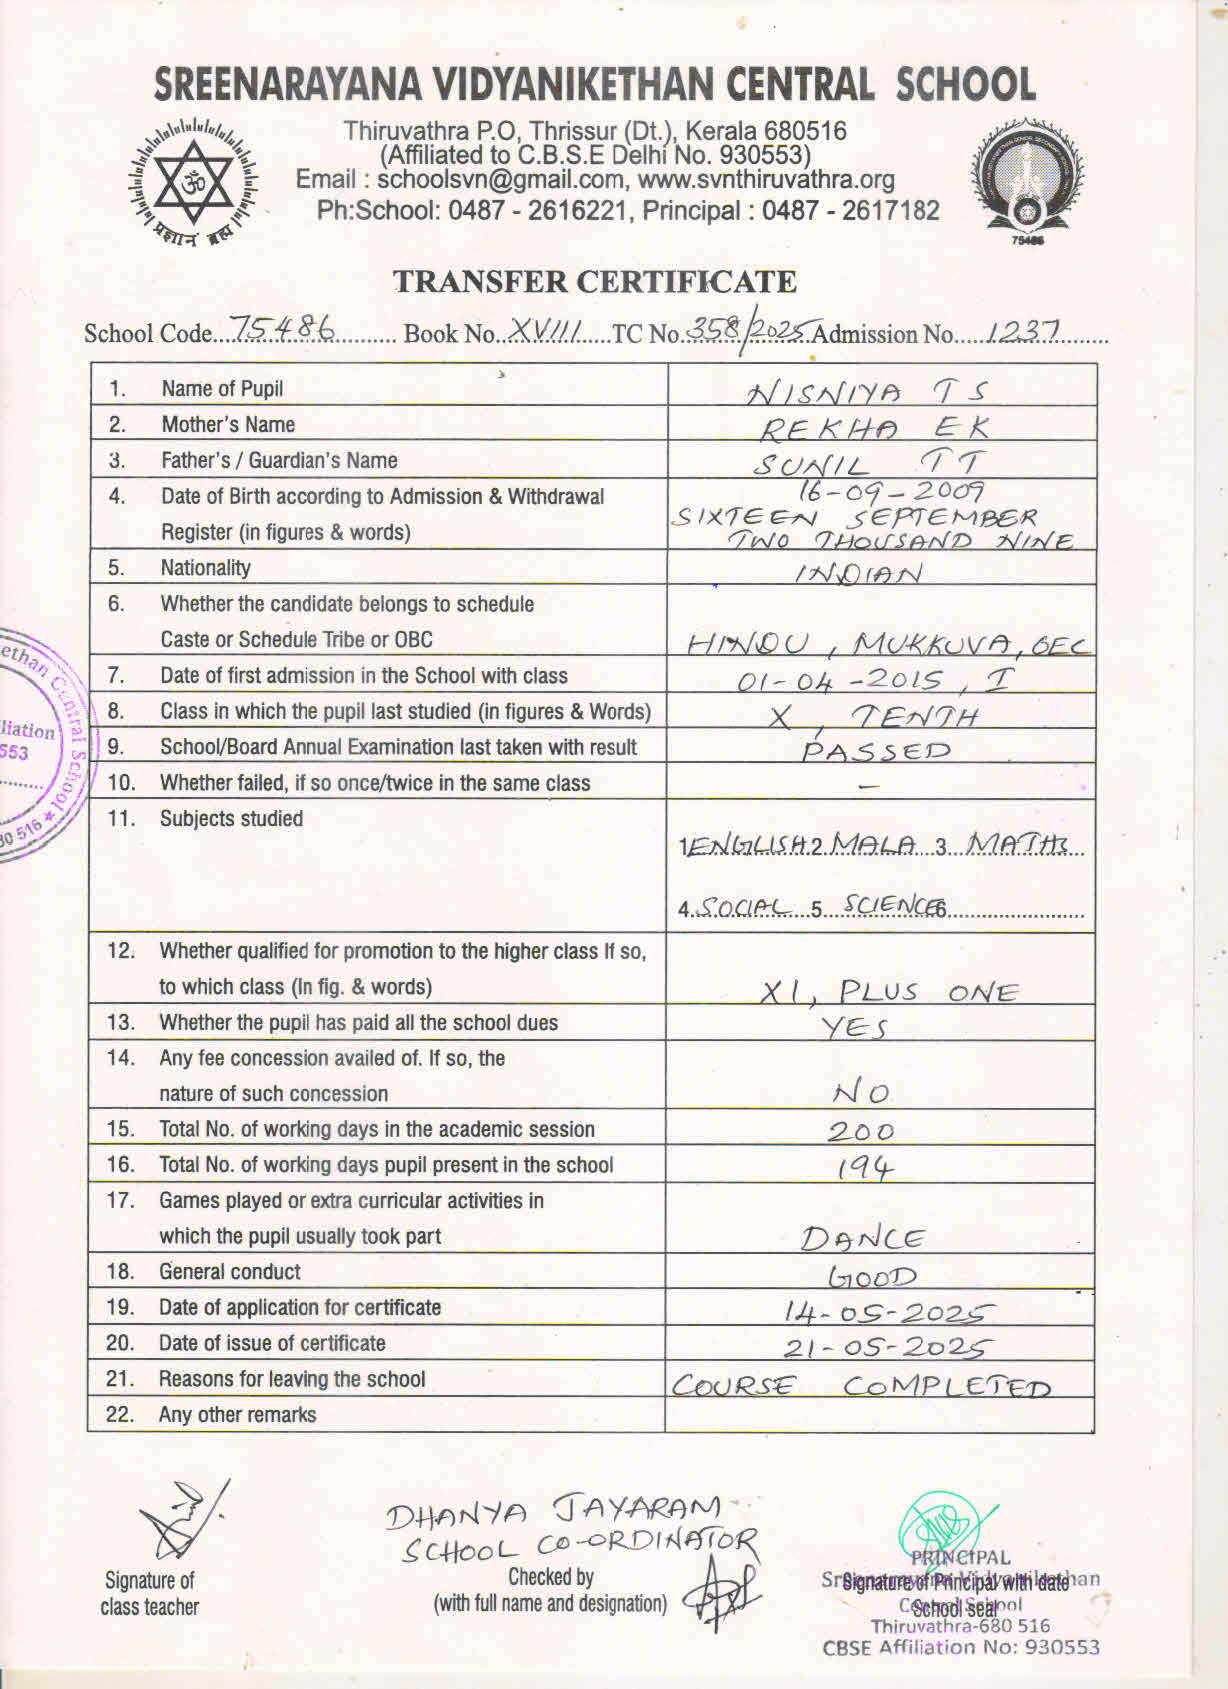 SREENARAYANA VIDYANIKETHAN CENTRAL SCHOOL
Thiruvathra P.O, Thrissur (Dt.), Kerala 680516
(Affiliated to C.B.S.E Delhi No. 930553)
Email : schoolsvn@gmail.com, www.svnthiruvathra.org
Ph:School: 0487 - 2616221, Principal : 0487 - 2617182
प्रज्ञानं ब्रह्म
75486
TRANSFER CERTIFICATE
School Code....75486.......... Book No..XVIII.....TC No.358/2025.Admission No.....1237.........
1. Name of Pupil NISNIYA T S
2. Mother's Name REKHA E K
3. Father's / Guardian's Name SUNIL T T
4. Date of Birth according to Admission & Withdrawal 16-09-2009
Register (in figures & words) SIXTEEN SEPTEMBER
TWO THOUSAND NINE
5. Nationality INDIAN
6. Whether the candidate belongs to schedule
Caste or Schedule Tribe or OBC HINDU, MUKKUVA, OEC
7. Date of first admission in the School with class 01-04-2015, I
8. Class in which the pupil last studied (in figures & Words) X, TENTH
9. School/Board Annual Examination last taken with result PASSED
10. Whether failed, if so once/twice in the same class –
11. Subjects studied
1.ENGLISH.2.MALA...3...MATHS...
4.SOCIAL...5...SCIENCE6.......................
12. Whether qualified for promotion to the higher class If so,
to which class (In fig. & words) XI, PLUS ONE
13. Whether the pupil has paid all the school dues YES
14. Any fee concession availed of. If so, the
nature of such concession NO
15. Total No. of working days in the academic session 200
16. Total No. of working days pupil present in the school 194
17. Games played or extra curricular activities in
which the pupil usually took part DANCE
18. General conduct GOOD
19. Date of application for certificate 14-05-2025
20. Date of issue of certificate 21-05-2025
21. Reasons for leaving the school COURSE COMPLETED
22. Any other remarks
ethan Central School
liation
553
80 516 ★
DHANYA JAYARAM
SCHOOL CO-ORDINATOR
Signature of
class teacher
Checked by
(with full name and designation)
PRINCIPAL
Sreenarayana Vidyanikethan
Signature of Principal with date
Central School
School seal
Thiruvathra-680 516
CBSE Affiliation No: 930553